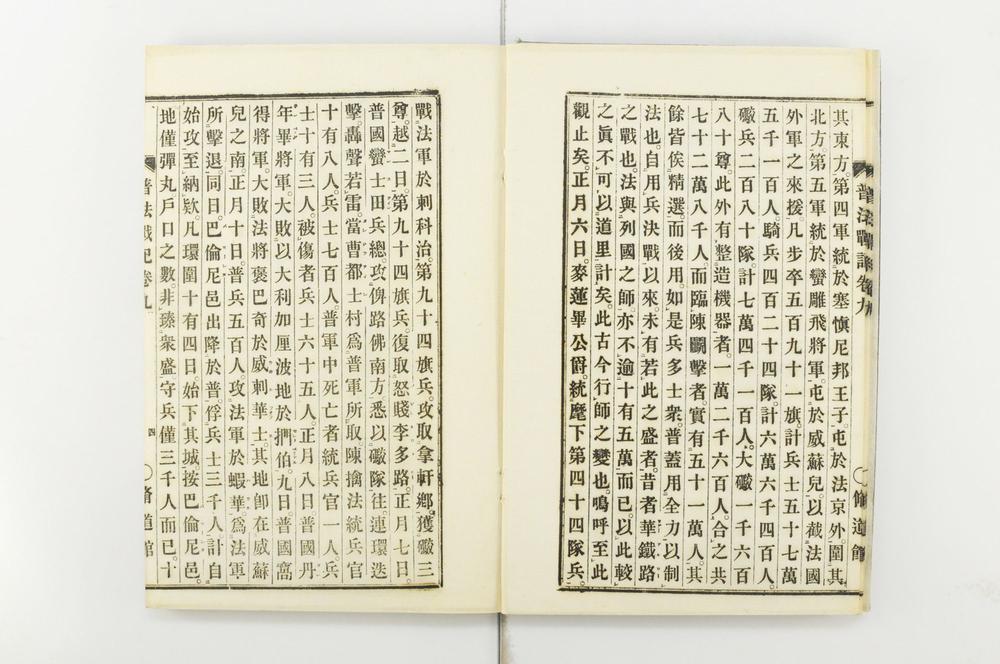 普法戰記卷九
脩道館
其東方。第四軍統於塞慎尼邦王子。屯於法京外。圍其
北方。第五軍統於蠻雕飛將軍。屯於威蘇兒。以截法國
外軍之來援。凡步卒五百九十一旗。計兵士五十七萬
五千一百人。騎兵四百二十四隊。計六萬六千四百人。
礮兵二百八十隊。計七萬四千一百人。大礮一千六百
八十尊。此外有整造機器者。一萬二千六百人。合之共
七十二萬八千人。而臨陳鬭擊者。實有五十一萬人。其
餘皆俟精選。而後用。如是兵多士衆。普蓋用全力以制
法也。自用兵決戰以來。未有若此之盛者。昔者華鐵路
之戰也。法與列國之師。亦不逾十有五萬而已。以此較
之眞不可以道里計矣。此古今行師之變也。嗚呼至此
觀止矣。正月六日。麥蓮畢公爵。統麾下第四十四隊兵。
戰法軍於刺科治。第九十四旗兵。攻取拿軒鄕。獲礮三
尊。越二日。第九十四旗兵。復取怒賤李多路。正月七日。
普國蠻士田兵總。攻俾路佛南方。悉以礮隊往。連環迭
擊。轟聲若雷。當曹都士村爲普軍所取。陳擒法統兵官
十有八人。兵士七百人。普軍中死亡者統兵官一人。兵
士十有三人。被傷者兵士六十五人。正月八日。普國丹
年畢將軍。大敗以大利加厘波地於捫伯。九日。普國窩
得將軍。大敗法將褒巴奇於威刺華士。其地卽在威蘇
兒之南。正月十日。普兵五百人。攻法軍於蝦華。爲法軍
所擊退。同日。巴倫尼邑出降於普。俘兵士三千人。計自
始攻至納款。凡環圍十有四日。始下其城。按巴倫尼邑。
地僅彈丸。戶口之數。非臻衆盛。守兵僅三千人而已。十
普法戰記卷九
四
脩道館